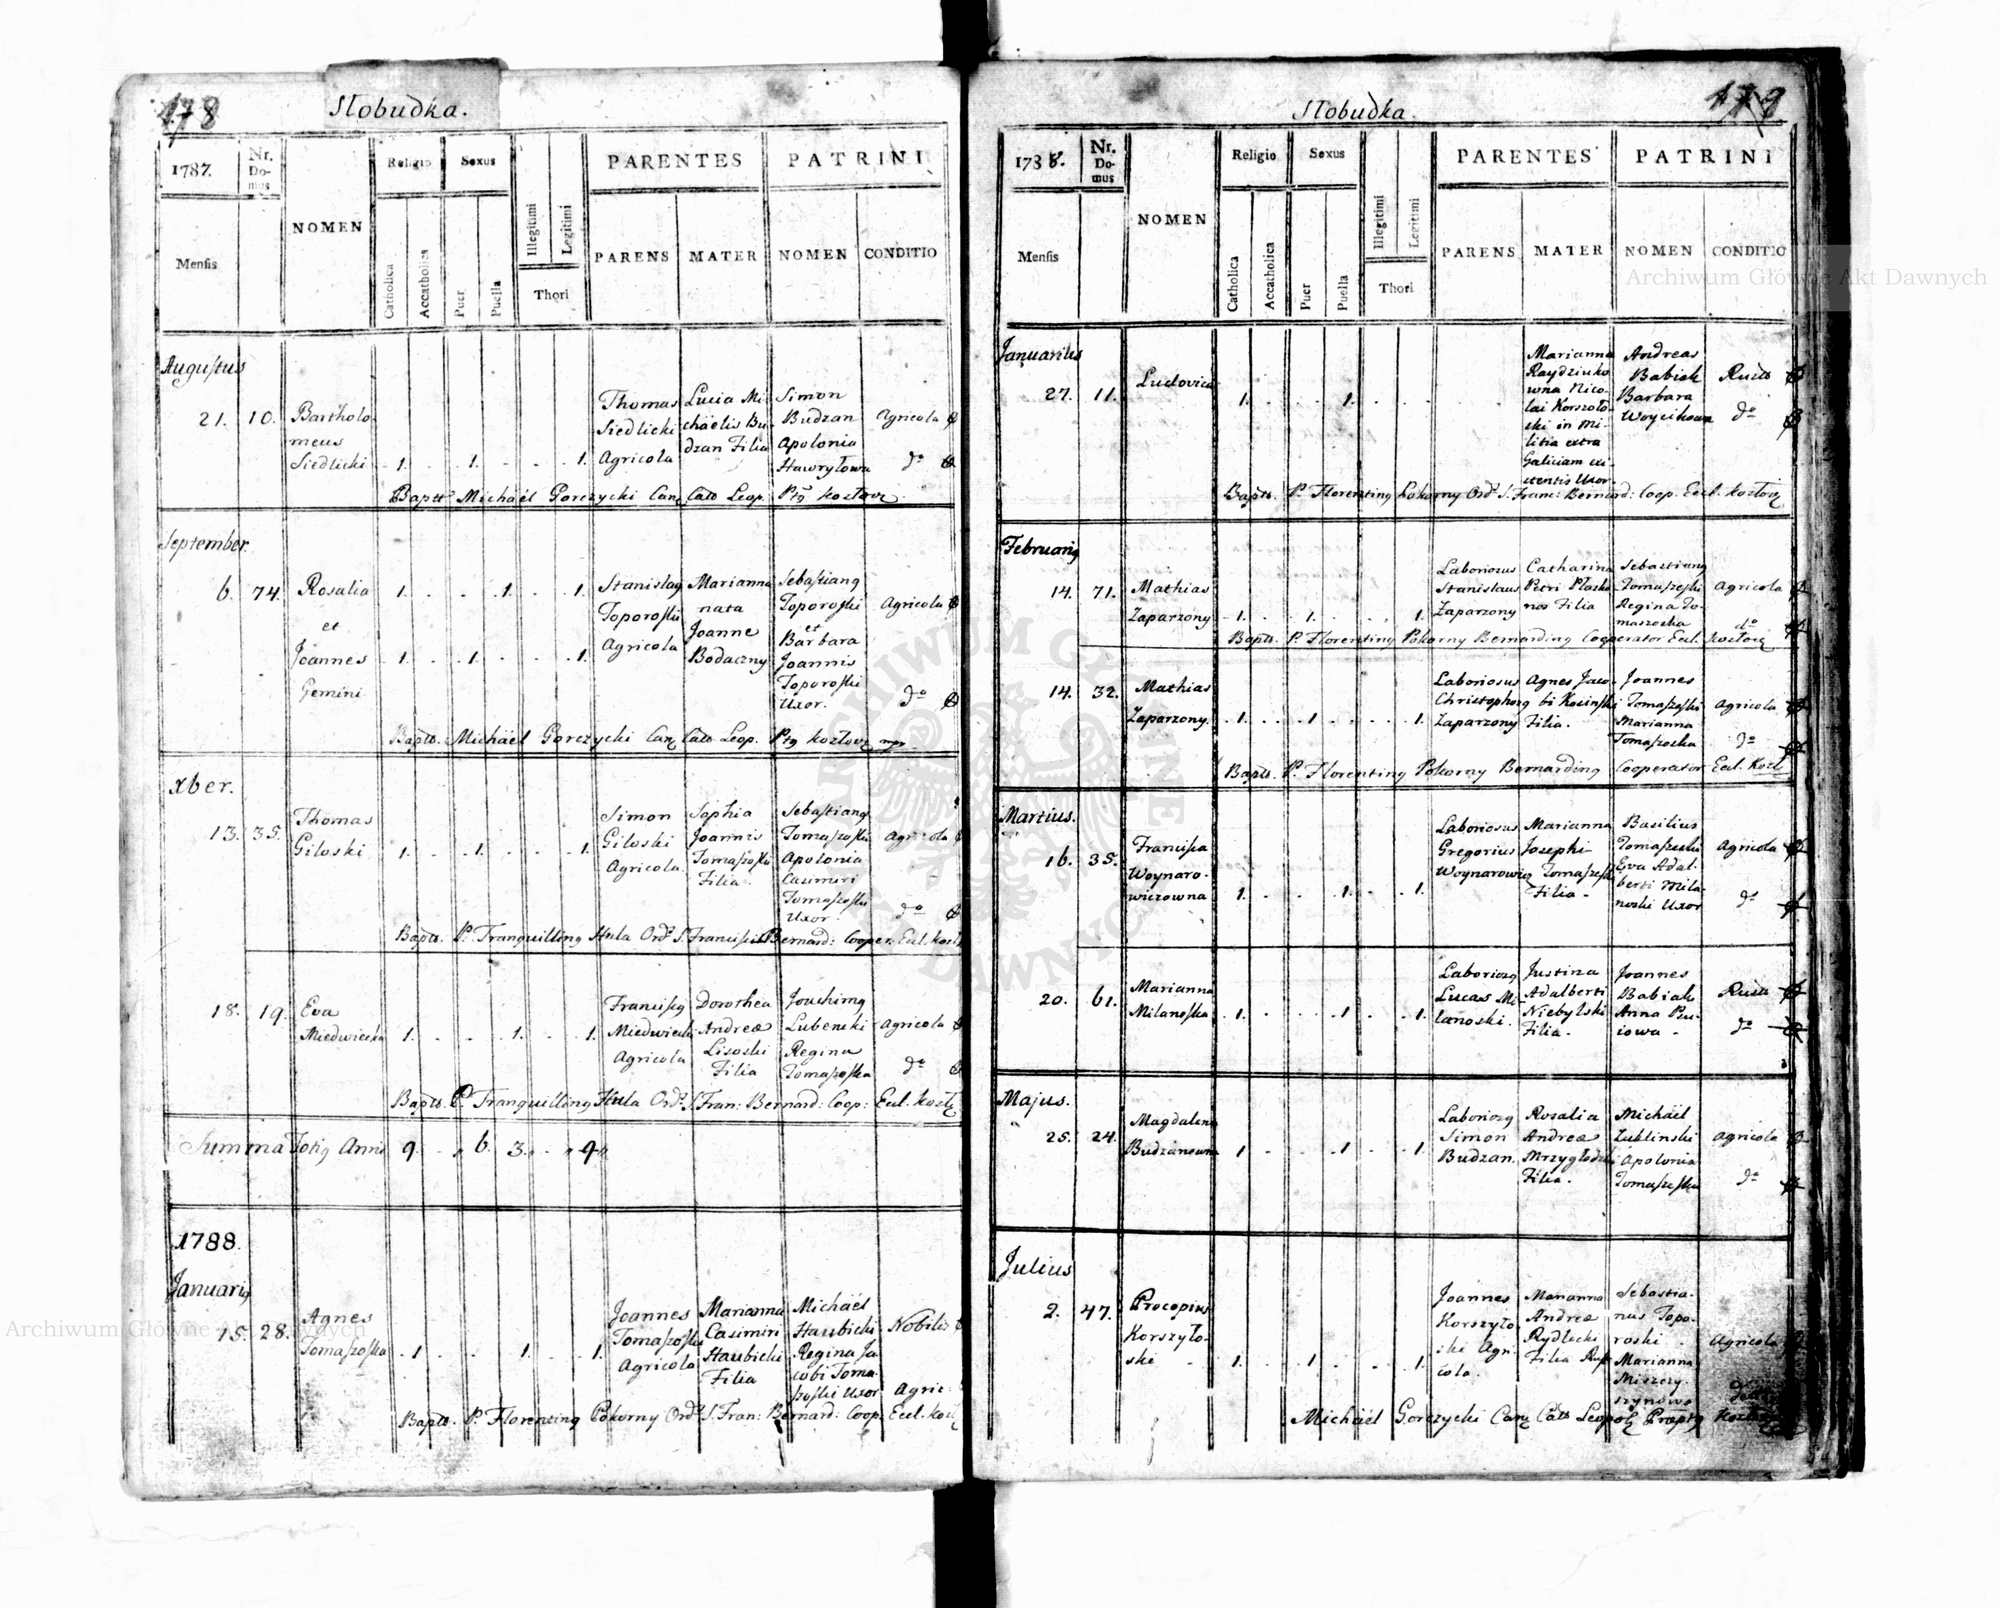 178
Slobudka.
1787.
Nr. Domus
NOMEN
Religio
Sexus
Illegitimi
Legitimi
PARENTES
PATRINI
Mensis
Catholica
Accatholica
Puer
Puella
Thori
PARENS
MATER
NOMEN
CONDITIO
Augustus
21. 10.
Bartholo-
meus
Siedlicki
1. 1. 1.
Thomas
Siedlicki
Agricola
Lucia Mi-
chäelis Bu-
dzan Filia
Simon
Budzan
Apolonia
Hawryłowa
Agricola
do
Bapts Michäel Gorczycki Can Cats Leop.
September.
6. 74.
Rosalia
et
Joannes
Gemini
1. 1. 1.
1. 1. 1.
Stanislaq
Toporoski
Agricola
Marianna
nata
Joanne
Bodaczny
Sebastianq
Toporoski
et
Barbara
Joannis
Toporoski
Uxor.
Agricola
do
Bapts. Michäel Gorczycki Can Cats Leop.
Xber.
13. 35.
Thomas
Giloski
1. 1. 1.
Simon
Giloski
Agricola.
Sophia
Joannis
Tomaszoski
Filia.
Sebastianq
Tomaszoski
Apolonia
Casimiri
Tomaszoski
Uxor.
Agricola
do
Bapts. P. Tranquillinq Hula Ord. S. Francisci Bernard: Cooper. Eccl.
18. 19.
Eva
Miedwiecka
1. 1. 1.
Franciscq
Miedwiecki
Agricola
Dorothea
Andreæ
Lisoski
Filia
Joachimq
Lubenski
Regina
Tomaszoska
Agricola
do
Bapts. P. Tranquillinq Hula Ord. S. Fran: Bernard: Coop: Eccl.
Summa Totiq Anni 9 6. 3. 9
1788.
Januariq
15. 28.
Agnes
Tomaszoska
1 1. 1.
Joannes
Tomaszoski
Agricola
Marianna
Casimiri
Haubicki
Filia
Michäel
Haubicki
Regina Ja-
cobi Toma-
szoski Uxor
Nobilis
Agric:
Bapts. P. Florentinq Pokorny Ord. S. Fran: Bernard: Coop. Eccl.
179
Slobudka.
1788.
Nr. Domus
NOMEN
Religio
Sexus
Illegitimi
Legitimi
PARENTES
PATRINI
Mensis
Catholica
Accatholica
Puer
Puella
Thori
PARENS
MATER
NOMEN
CONDITIO
Archiwum Główne Akt Dawnych
Januarius
27. 11.
Ludovica
1. 1.
Marianna
Raydziuko-
wna Nico-
lai Korszoło-
ski in Mi-
litia extra
Galiciam exi-
stentis Uxor.
Andreas
Babiak
Barbara
Woycikowa
do
Bapts. P. Florentinq Pokorny Ord. S. Franc: Bernard: Coop. Eccl.
Februariq
14. 71.
Mathias
Zaparzony
1. 1. 1.
Laboriosus
Stanislaus
Zaparzony
Catharina
Petri
Filia
Sebastianq
Tomaszeski
Regina To-
maszoska
Agricola
do
Bapts. P. Florentinq Pokorny Bernardinq Cooperator Eccl.
14. 32.
Mathias
Zaparzony.
1. 1. 1.
Laboriosus
Christophorq
Zaparzony
Agnes Jaco-
bi Kosinski
Filia.
Joannes
Tomaszoski
Marianna
Tomaszoska
Agricola
do
Bapts. P. Florentinq Pokorny Bernardinq Cooperator Eccl.
Martius.
16. 35.
Francisca
Woynaro-
wiczowna
1. 1. 1.
Laboriosus
Gregorius
Woynarowicz
Marianna
Josephi
Tomaszoski
Filia.
Basilius
Tomaszoski
Eva Adal-
berti Mila-
noski Uxor
Agricola
do
20. 61.
Marianna
Milanoska
1. 1. 1.
Laboriosq
Lucas Mi-
lanoski.
Justina
Adalberti
Niebylski
Filia.
Joannes
Babiak
Anna
do
Majus.
25. 24.
Magdalena
Budzanowna
1 1 1.
Laboriosq
Simon
Budzan.
Rosalia
Andreæ
Filia.
Michäel
Lublinski
Apolonia
Tomaszoska
Agricola
do
Julius
2. 47.
Procopius
Korszyło-
ski
1. 1. 1.
Joannes
Korszyło-
ski Agri-
cola.
Marianna
Andreæ
Rydlicki
Filia
Sebastia-
nus Topo-
roski.
Marianna
Agricola
Michäel Gorczycki Can Cats
ARCHIWUM GŁÓWNE
AKT DAWNYCH
Archiwum Główne Akt Dawnych